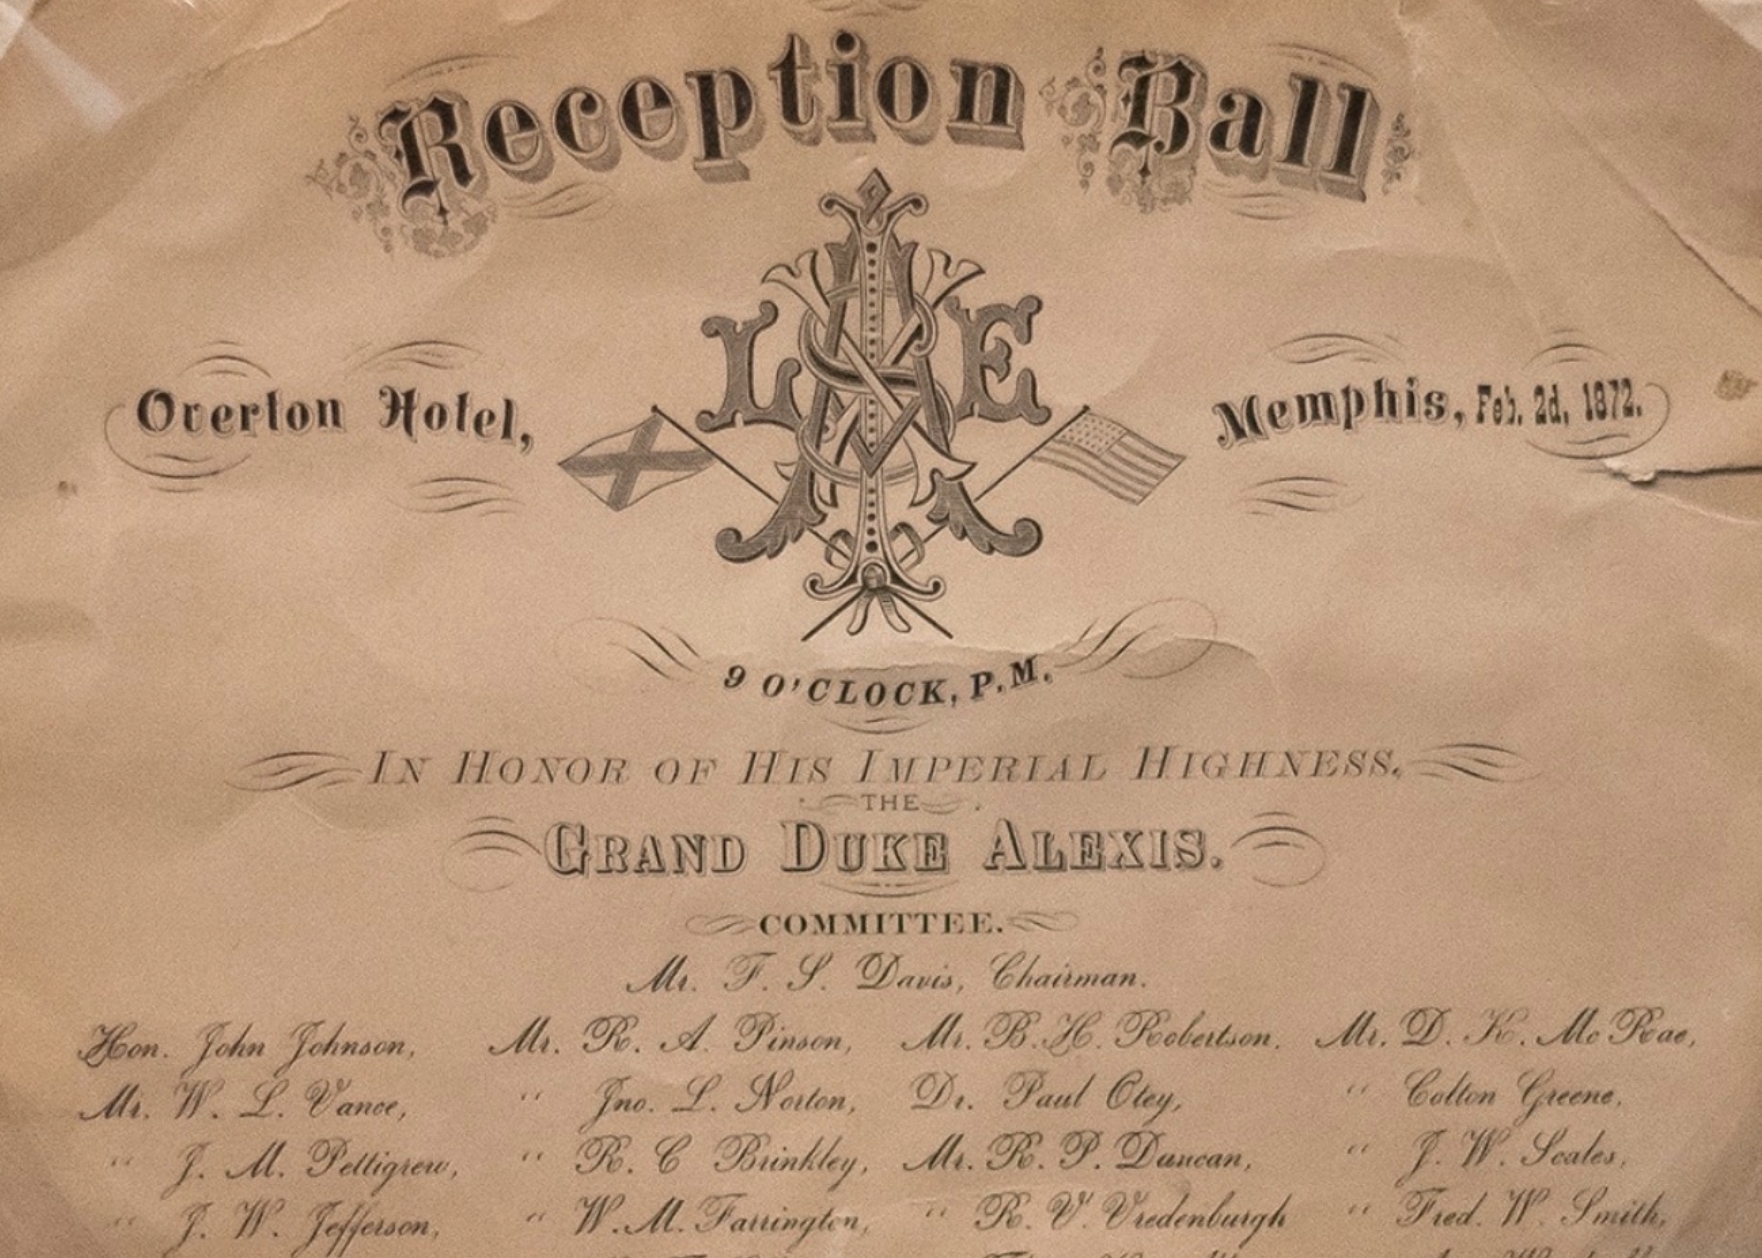 Reception Ball
Overton Hotel,
LAE
Memphis, Feb. 2d, 1872.
9 O'CLOCK, P.M.
IN HONOR OF HIS IMPERIAL HIGHNESS,
THE
GRAND DUKE ALEXIS.
COMMITTEE.
Mr. F. S. Davis, Chairman.
Hon. John Johnson, Mr. R. A. Pinson, Mr. B. H. Robertson. Mr. D. K. Mc Rae,
Mr. W. L. Vance, " Jno. L. Norton, Dr. Paul Otey, " Colton Greene,
" J. M. Pettigrew, " R. C Brinkley, Mr. R. P. Duncan, " J. W. Scales,
" J. W. Jefferson, " W. M. Farrington, " R. V. Vredenburgh " Fred. W. Smith,